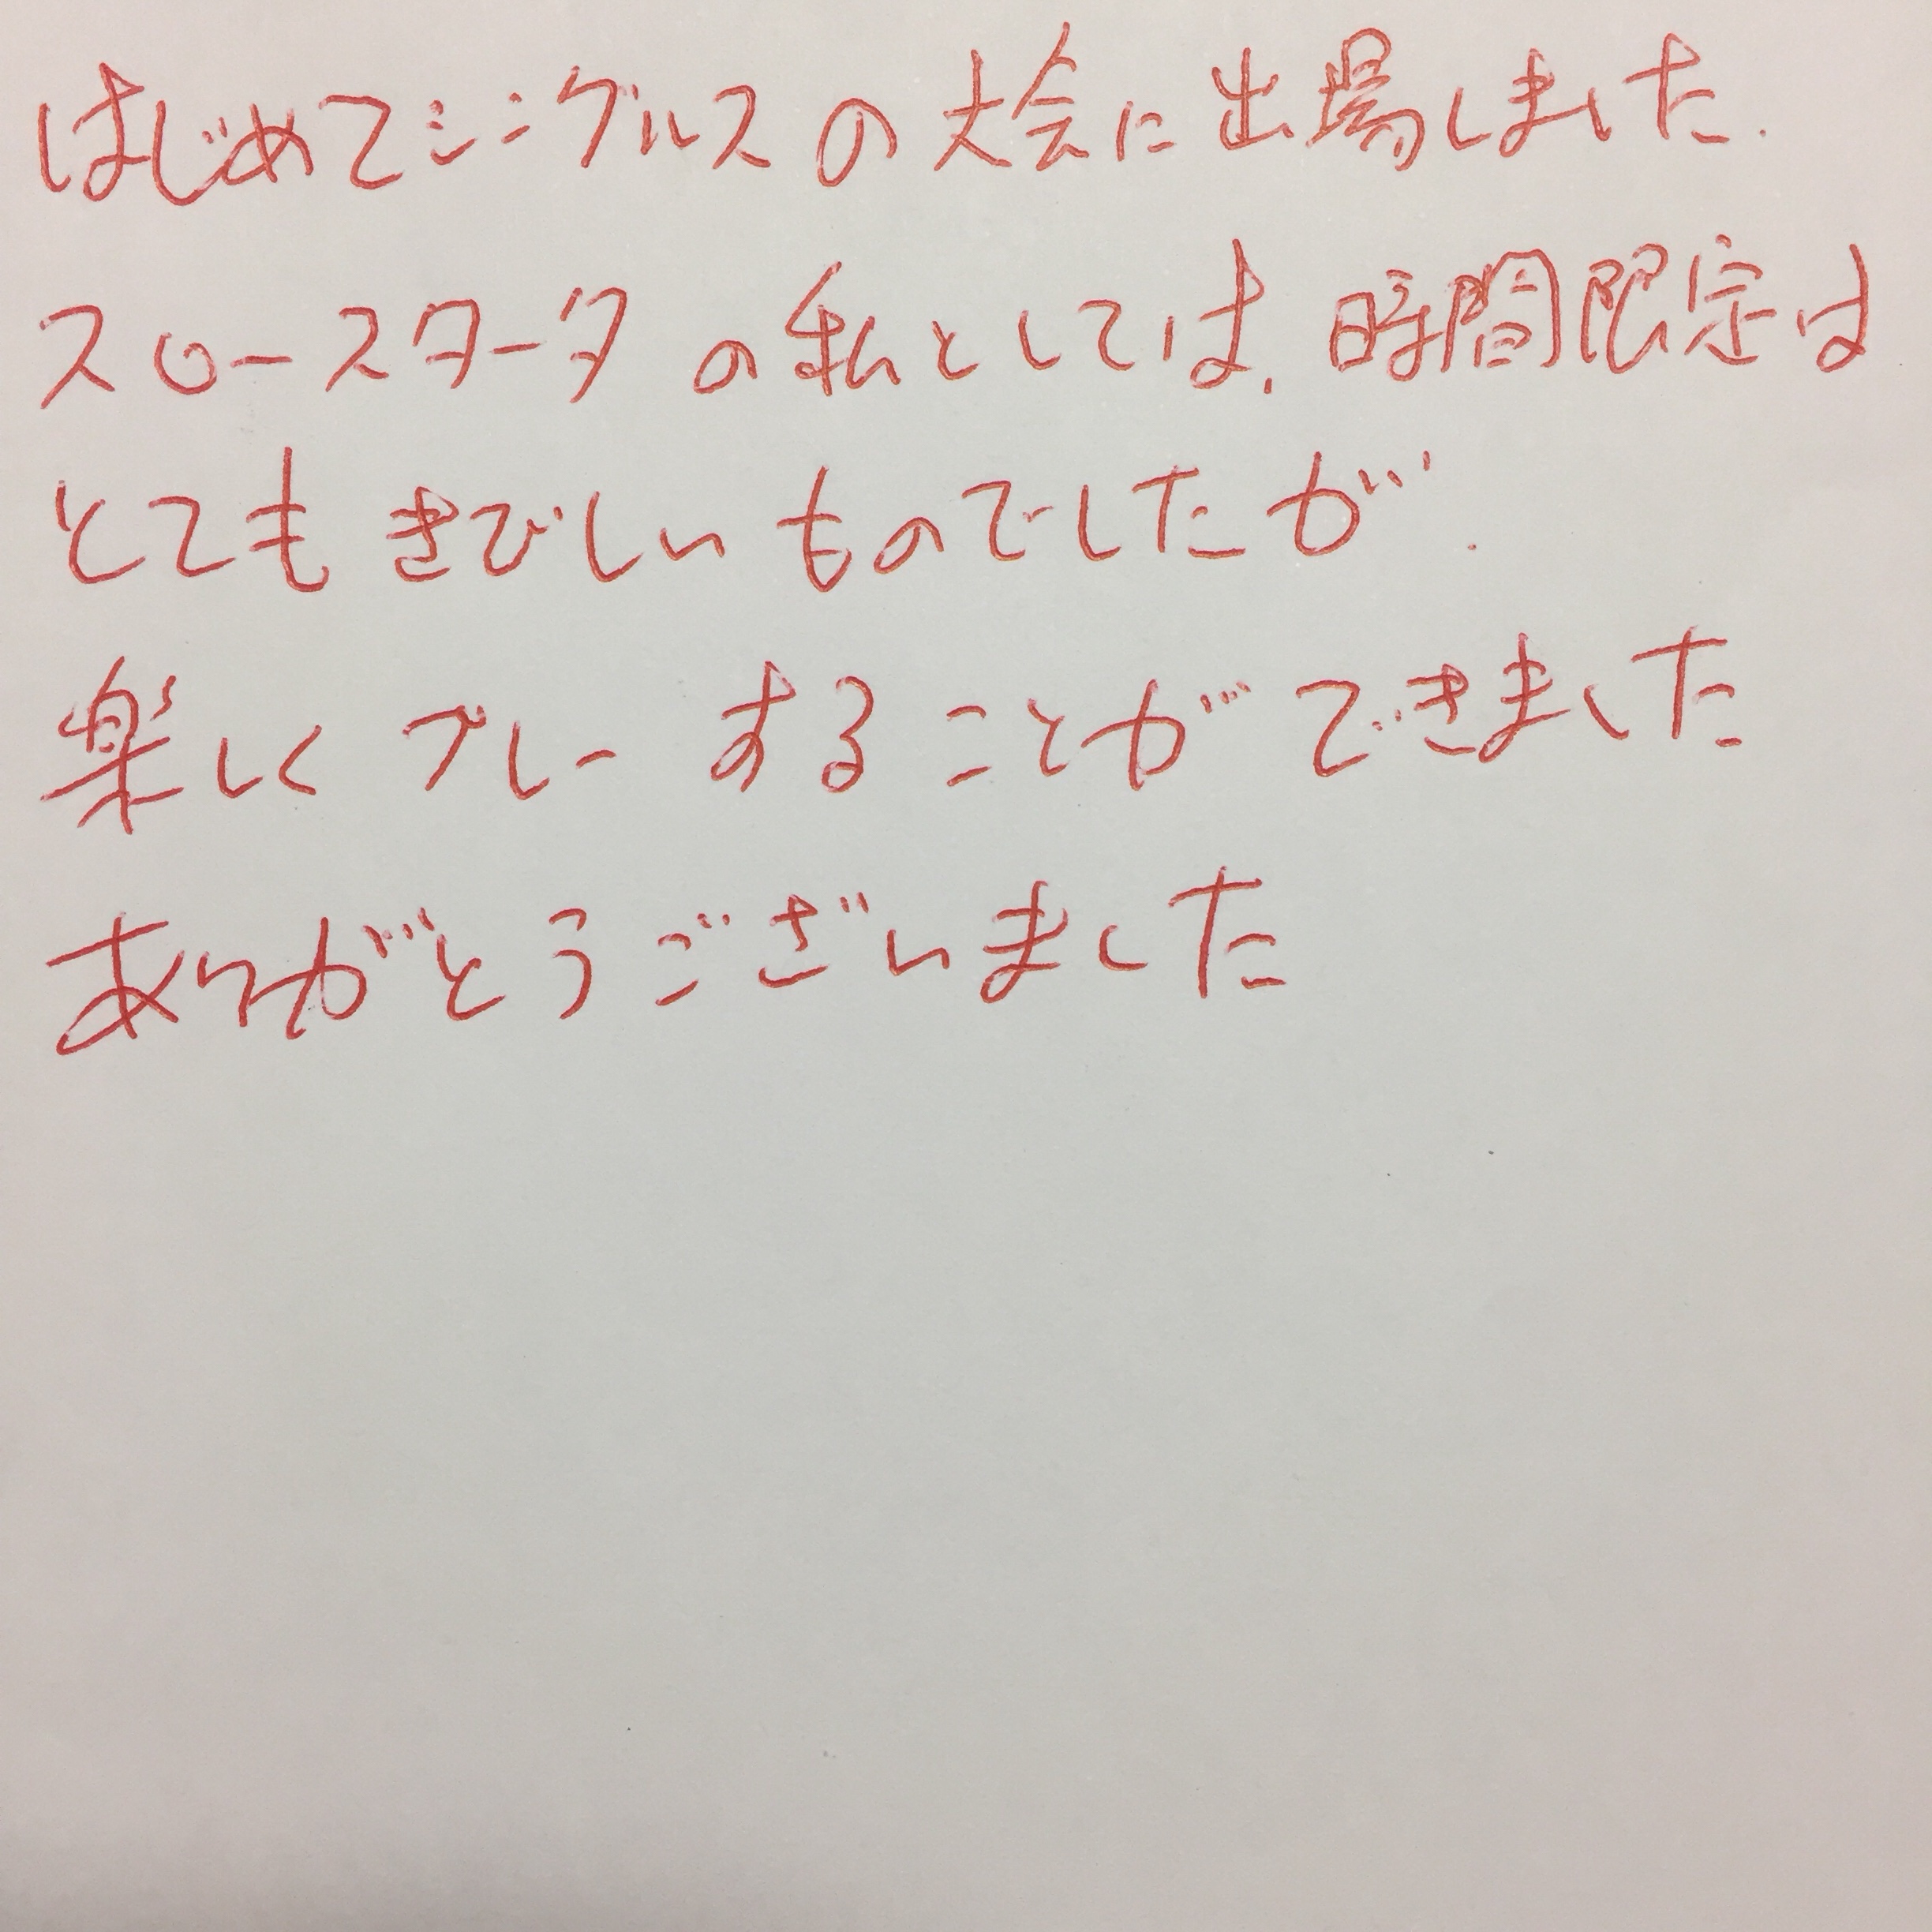 はじめてシングルスの大会に出場しました.
スロースタータの私としては、時間限定は
とてもきびしいものでしたが.
楽しくプレーすることができました
ありがとうございました